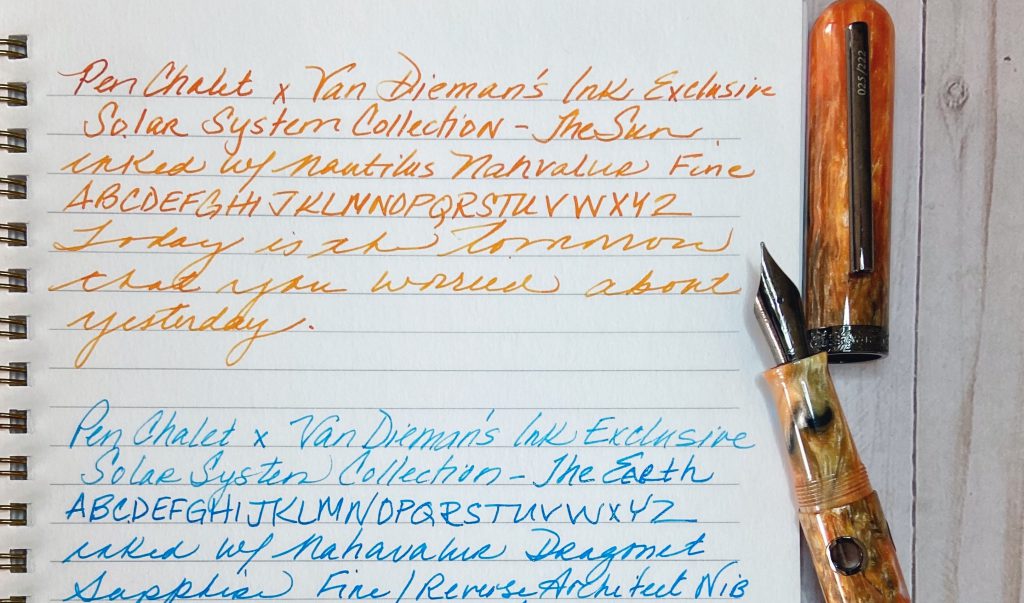 Pen Chalet x Van Dieman's Ink Exclusive
Solar System Collection - The Sun
inked w/ Nautilus Nahvalur Fine
ABCDEFGHIJKLMNOPQRSTUVWXYZ
Today is the Tomorrow
that you worried about
yesterday.
Pen Chalet x Van Dieman's Ink Exclusive
Solar System Collection - The Earth
ABCDEFGHIJKLMNOPQRSTUVWXYZ
inked w/ Nahavalur Dragonet
Sapphire Fine/Reverse Architect Nib
025/222